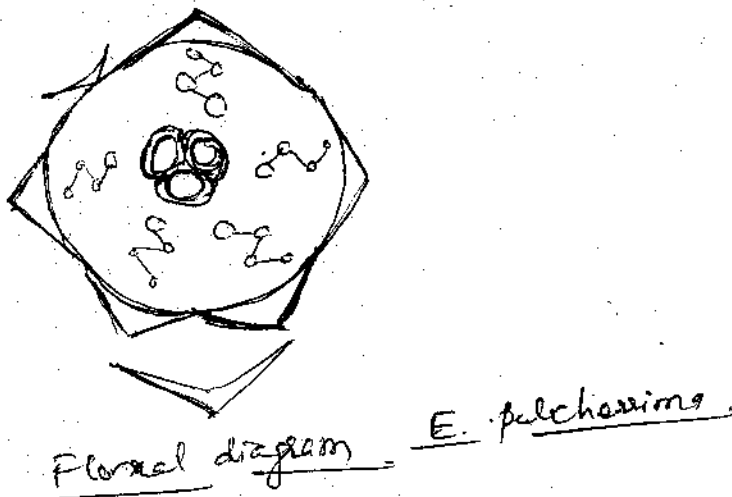 Floral diagram E. pulcherrima.